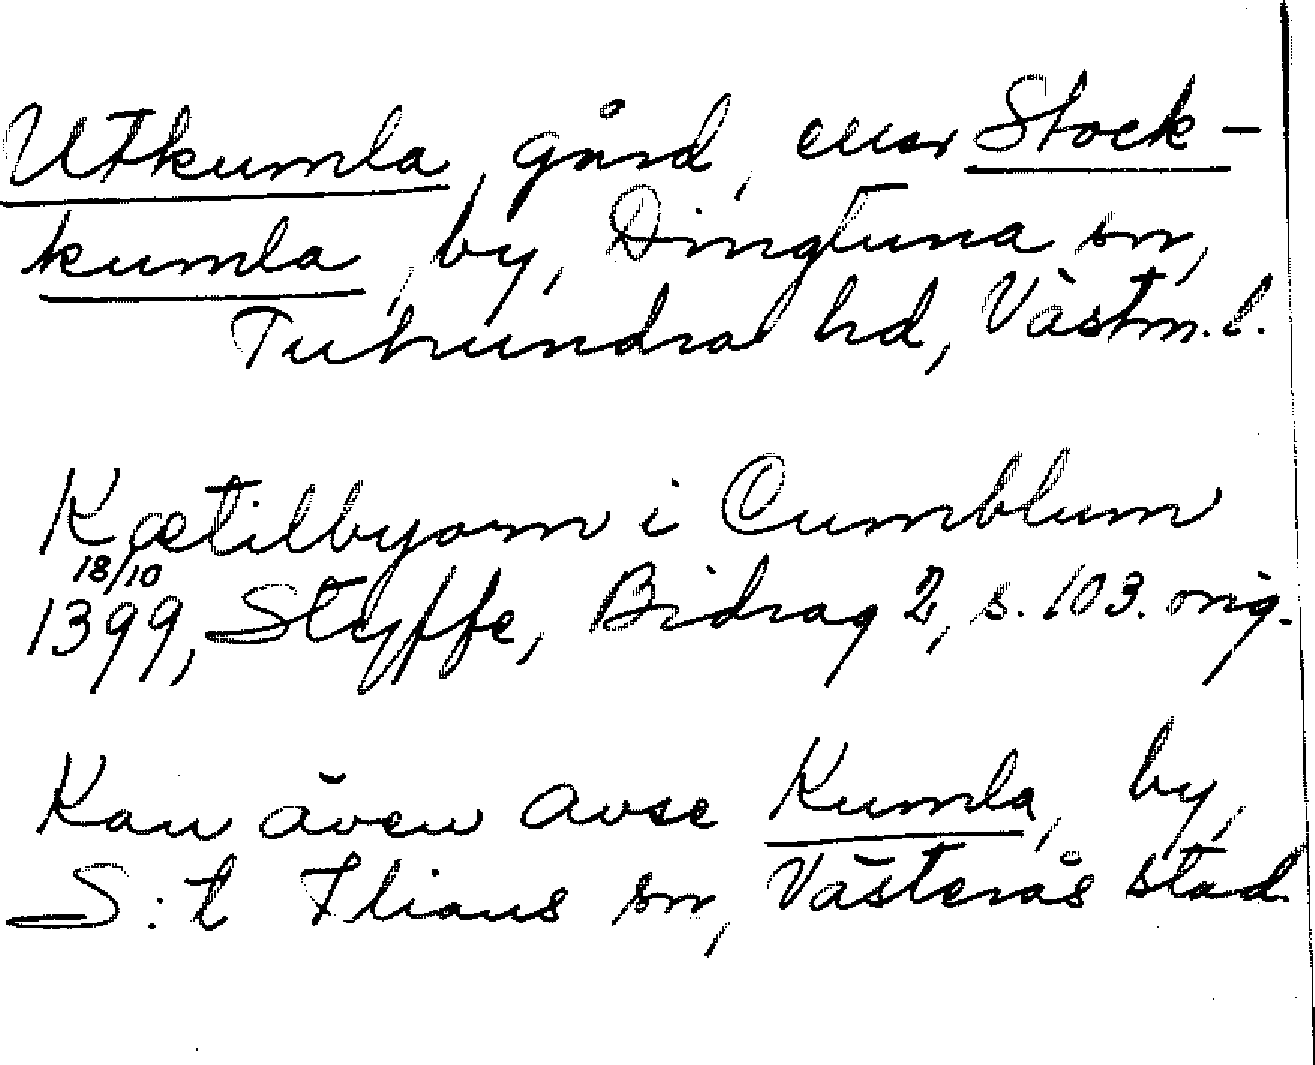 Utkumla, gård, eller Stock-
kumla, by, Dingtuna sn,
Tuhundra hd, Västm. l.
Kætilbyorn i Cumblum
18/10
1399, Styffe, Bidrag 2, s. 103. orig.
Kan även avse Kumla, by,
S:t Ilians sn, Västerås stad.